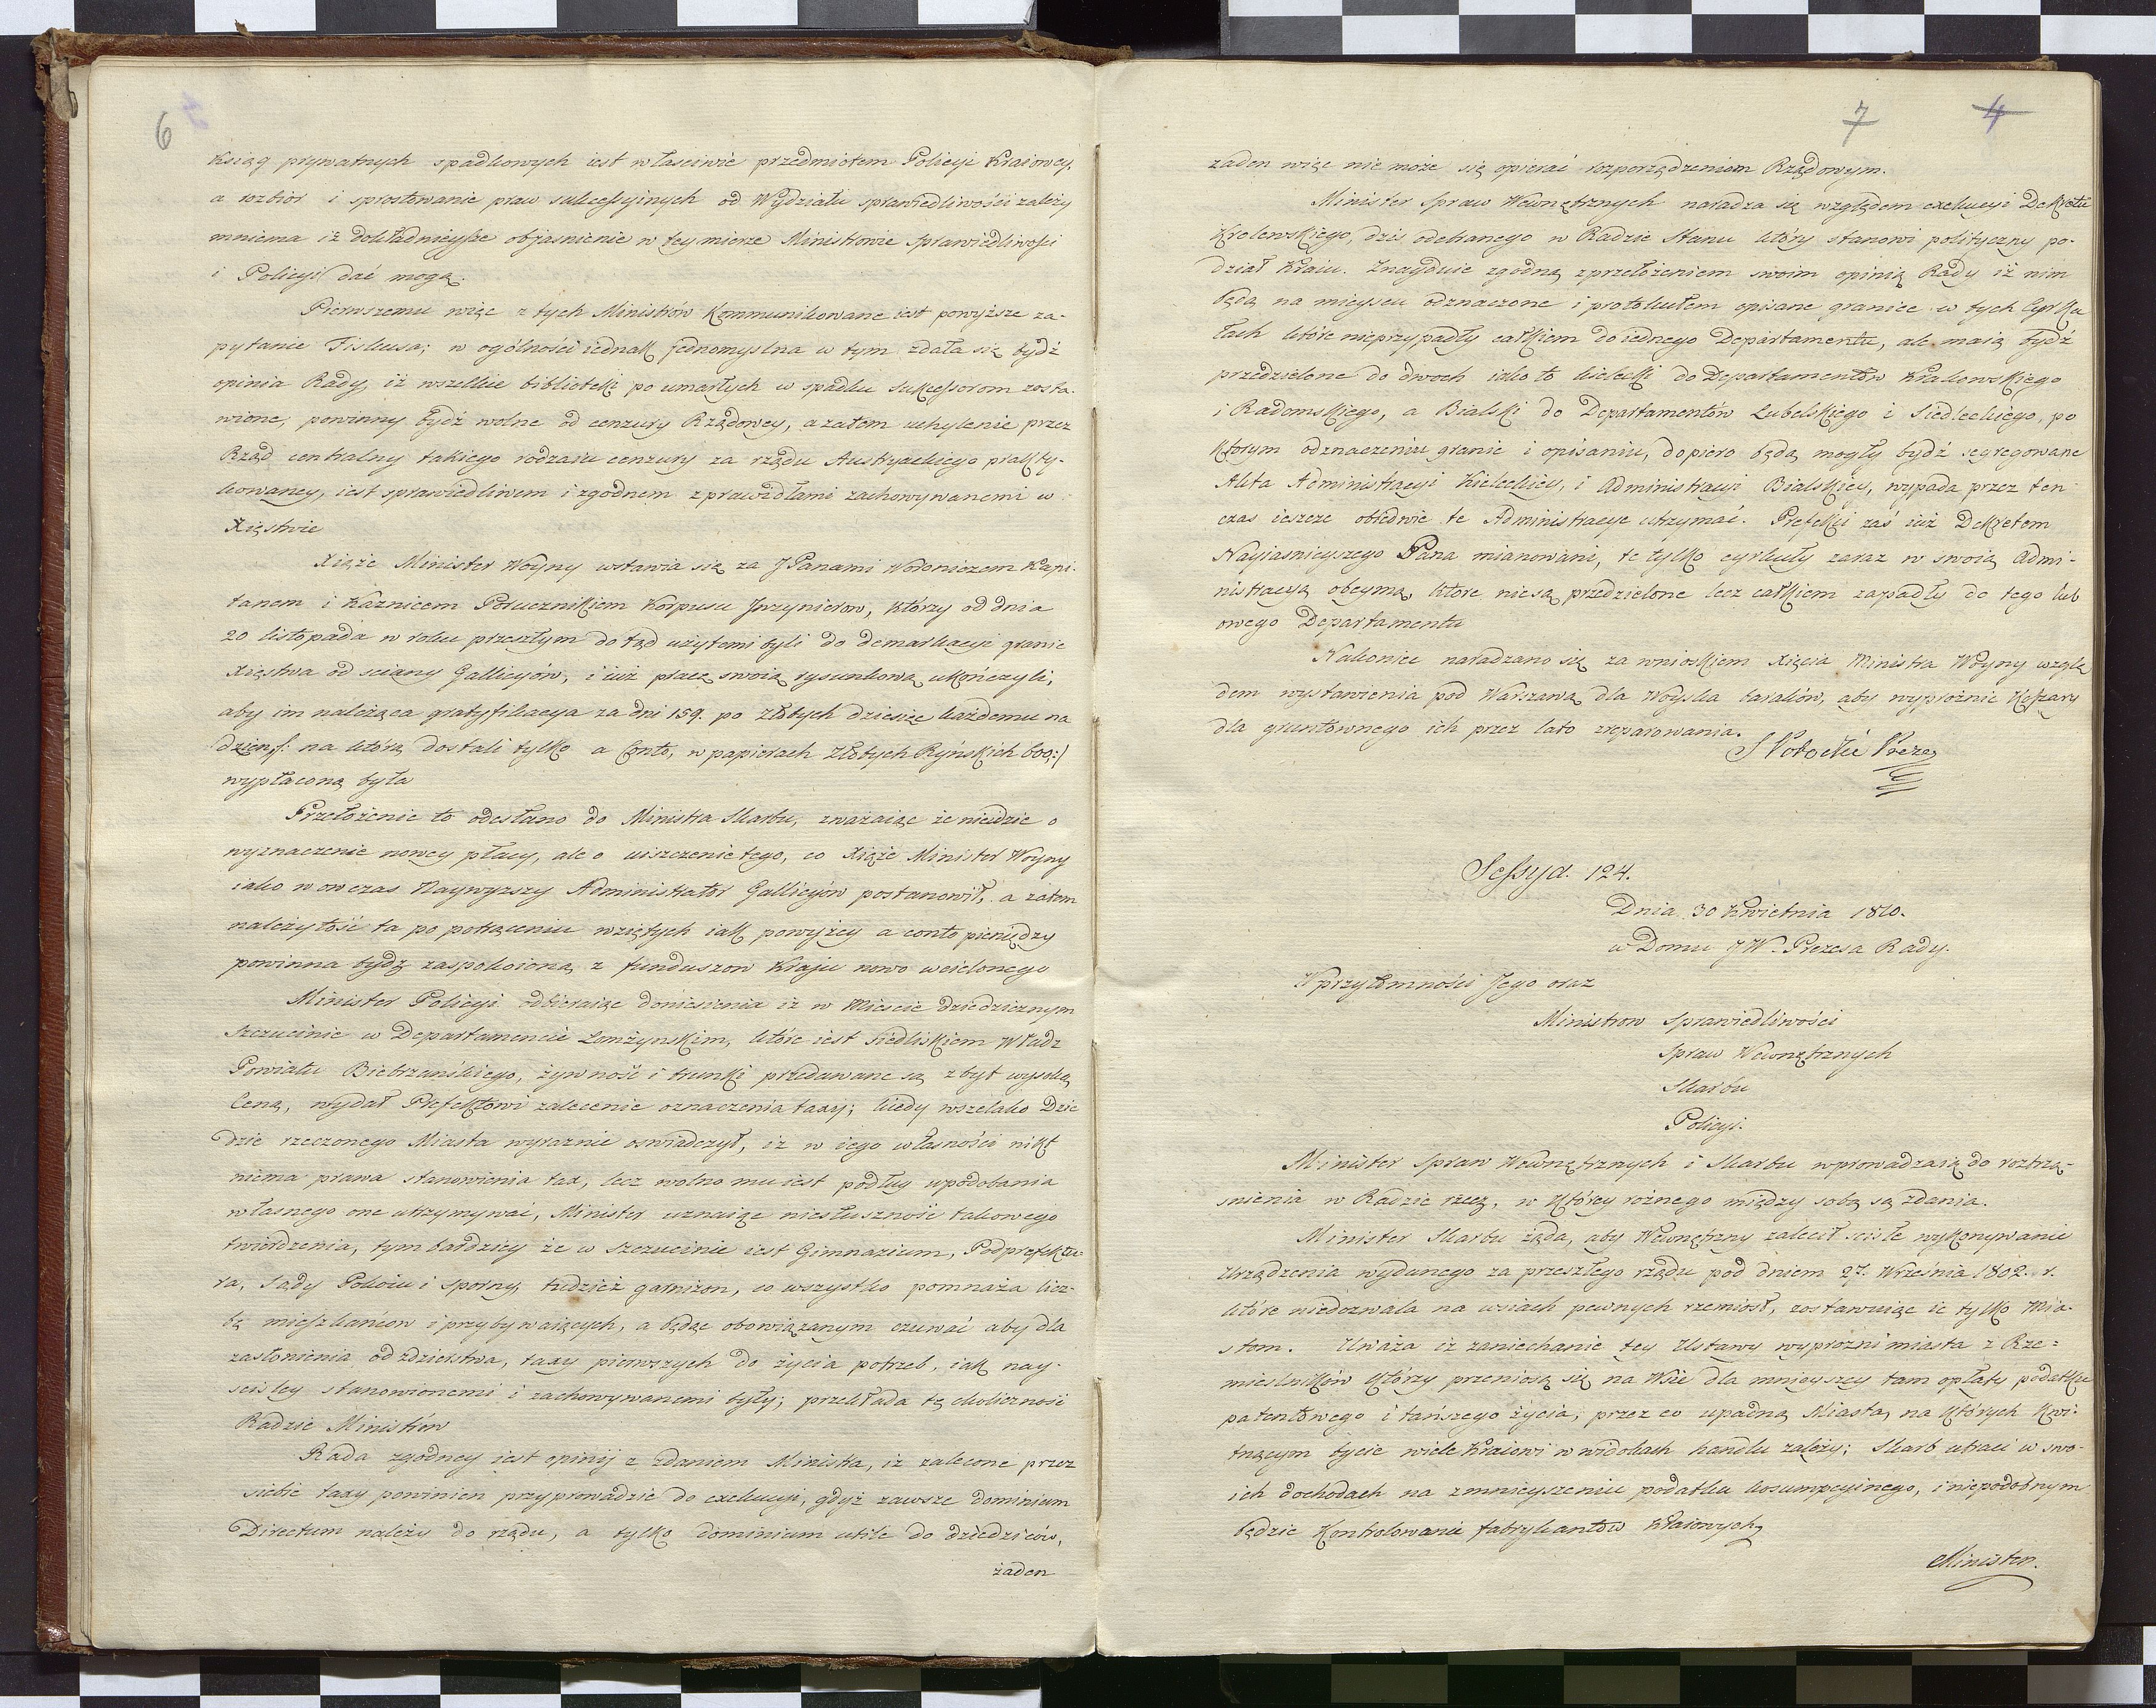 6
Ksiąg prywatnych spadkowych iest właściwie przedmiotem Policyi Kraiowey,
a rozbior i sprostowanie praw sukcessyinych od Wydziału sprawiedliwości zależy
mniema iż dokładnieysze objasnienie w tey mierze Ministrowie Sprawiedliwości
i Policyi dać mogą.
Pierwszemu więc z tych Ministrów Kommunikowane iest powyższe za-
pytanie Fiskusa; w ogólności iednak jednomyslna w tym zdała się bydź
opinia Rady, iż wszelkie biblioteki po umarłych w spadku Sukcessorom zosta-
wione, powinny bydź wolne od cenzury Rządowey, a zatem uchylenie przez
Rząd centralny takiego rodzaiu cenzury za rządu Austryackiego prakty-
kowaney, iest sprawiedliwem i zgodnem z prawidłami zachowywanemi w
Xięstwie
Xiąże Minister Woyny wstawia się za JPanami Woroniczem Kapi-
tanem i Kaznicem Porucznikiem Korpusu Jnzynierow, którzy od dnia
20 listopada w roku przeszłym do tąd użytemi byli do demarkacyi granic
Xięstwa od sciany Gallicyów, i iuż pracę swoią rysunkową ukończyli,
aby im należąca gratyfikacya za dni 159. po złotych dziesięć każdemu na
dzień /: na którą dostali tylko a Conto, w papierach Złotych Ryńskich 600 :/
wypłaconą była
Przełożenie to odesłano do Ministra Skarbu, zważaiąc że nieidzie o
wyznaczenie nowey płacy, ale o uiszczenie tego, co Xiąże Minister Woyny
iako wowczas Naywyzszy Administrator Gallicyów postanowił, a zatem
należytość ta po potrąceniu wziętych iak powyżey a conto pieniędzy
powinna bydź zaspokoioną z funduszow Kraju nowo wcielonego
Minister Policyi odbieraiąc doniesienia iż w Mieście dziedzicznym
Szczucinie w Departamencie Łomżynskim, które iest siedliskiem Władz
Powiatu Biebrzańskiego, żywność i trunki przedawane są zbyt wysoką
Ceną, wydał Prefektowi zalecenie oznaczenia taxy; kiedy wszelako Dzie
dzic rzeczonego Miasta wyraznie oswiadczył, iż w iego własności nikt
niema prawa stanowienia tax, lecz wolno mu iest podług upodobania
własnego one utrzymywać, Minister uznaiąc niesłuszność takowego
twierdzenia, tym bardziey że w Szczucinie iest Gimnazium, Podprefektu-
ra, Sądy Pokoiu i sporny, tudzież garnizon, co wszystko pomnaża licz-
bę mieszkańcow i przybywaiących, a będąc obowiązanym czuwać aby dla
zasłonienia od zdzierstwa, taxy pierwszych do życia potrzeb, iak nay-
scisley stanowionemi i zachowywanemi były; przekłada tę okoliczność
Radzie Ministrów
Rada zgodney iest opinij z zdaniem Ministra, iż zalecone przez
siebie taxy powinien przyprowadzić do exekucyi, gdyż zawsze dominium
Directum należy do rządu, a tylko dominium utile do dziedziców,
żaden
7 4
zaden więc nie może się opierać rozporządzeniom Rządowym.
Minister Spraw Wewnętrznych naradza się względem exekucyi Dekretu
Krolewskiego, dzis odebranego w Radzie Stanu który stanowi polityczny po-
dział Kraiu. Znayduie zgodną z przełożeniem swoim opinią Rady iż nim
będą na mieyscu odznaczone i protokułem opisane granice w tych Cyrku
łach które nieprzypadły całkiem do iednego Departamentu, ale maią bydź
przedzielone do dwoch iako to kielecki do Departamentów Krakowskiego
i Radomskiego, a Bialski do Departamentów Lubelskiego i Siedleckiego, po
którym odznaczeniu granic i opisaniu, dopiero będą mogły bydź segregowane
Akta Administracyi Kieleckiey, i Administracyi Bialskiey, wypada przez ten
czas ieszcze obiedwie te Administracye utrzymać. Prefekci zaś iuż Dekretem
Nayiasnieyszego Pana mianowani, te tylko cyrkuły zaraz w swoią Admi-
nistracyą obeymą, ktore niesą przedzielone lecz całkiem zapadły do tego lub
owego Departamentu
Nakoniec naradzano się za wnioskiem Xięcia Ministra Woyny wzglę
dem wystawienia pod Warszawą dla Woyska baraków, aby wyproźnić Koszary
dla gruntownego ich przez lato zreparowania.
S Potocki Prezes
Sessya. 124.
Dnia 30 Kwietnia 1810.
w Domu JW. Prezesa Rady.
W przytomności Jego oraz
Ministrow Sprawiedliwości
Spraw Wewnętrznych
Skarbu
Policyi.
Minister Spraw Wewnętrznych i Skarbu wprowadzaią do roztrzą-
snienia w Radzie rzecz, w którey rożnego między sobą są zdania.
Minister Skarbu żąda, aby Wewnętrzny zalecił scisłe wykonywanie
Urządzenia wydanego za przeszłego rządu pod dniem 27. Września 1802. r.
które niedozwala na wsiach pewnych rzemiosł, zostawuiąc ie tylko Mia-
stom. Uważa iż zaniechanie tey Ustawy wyprozni miasta z Rze=
mieslników którzy przeniosą się na Wsie dla mnieyszey tam opłaty podatku
patentowego i tańszego życia, przez co upadną Miasta, na których kwi-
tnącym bycie wiele Kraiowi w widokach handlu zależy; Skarb utraci w swo-
ich dochodach na zmnieyszeniu podatku kosumpcyinego, i niepodobnym
będzie Kontrolowanie fabrykantow Kraiowych,
Minister.